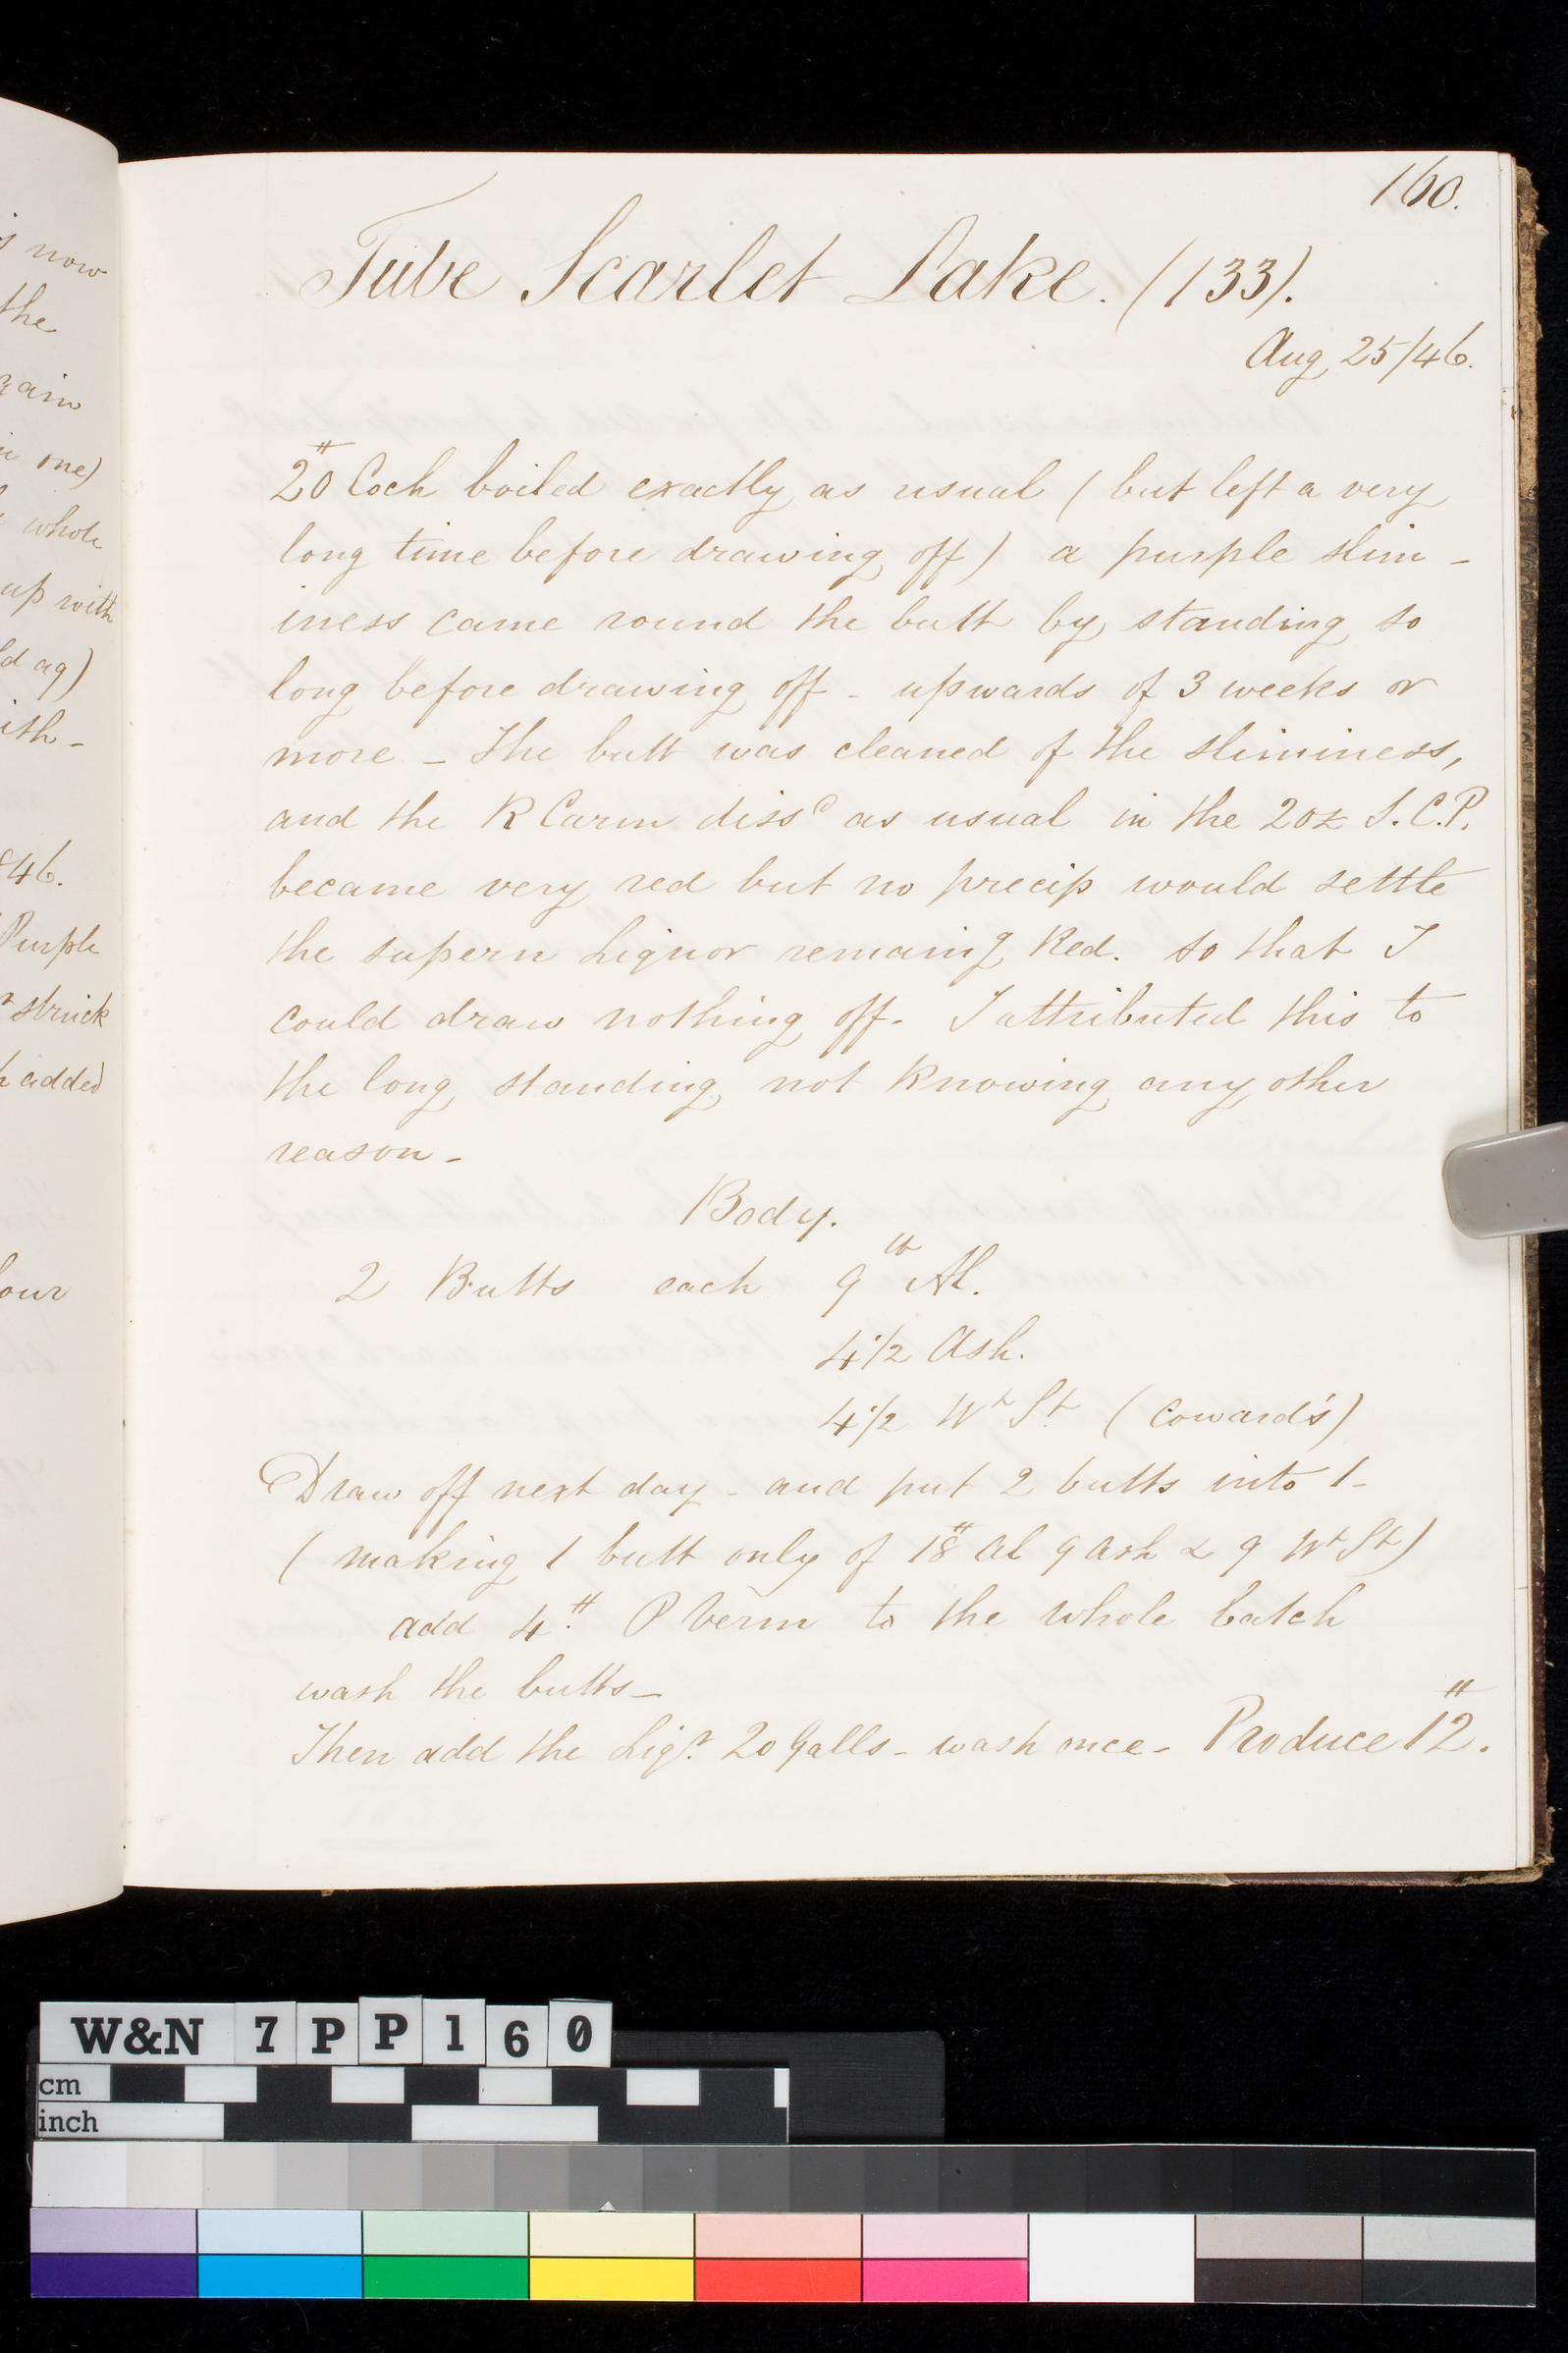 160.
Tube Scarlet Lake. (133).
Aug 25/46.
20# Coch boiled exactly as usual (but left a very
long time before drawing off) a purple slim-
iness came round the butt by standing so
long before drawing off - upwards of 3 weeks or
more - The butt was cleaned of the sliminess,
and the R Carm diss^d as usual in the 2oz S.C.P.
became very red but no precip would settle
the supern Liquor remaing Red. so that I
could draw nothing off. I attributed this to
the long standing not knowing any other
reason -
Body.
2 Butts each 9# Al.
4 1/2 Ash.
4 1/2 Wt St (Coward's)
Draw off next day - and put 2 butts into 1 -
(making 1 butt only of 18# al 9 ash & 9 Wt St)
add 4# P Verm to the whole batch
wash the butts -
Then add the Liqr. 20 Galls - wash once - Produce 12#.
s now
the
one)
whole
up with
ld ag)
ith -
46.
Purple
struck
added
our
W&N 7PP160
cm
inch